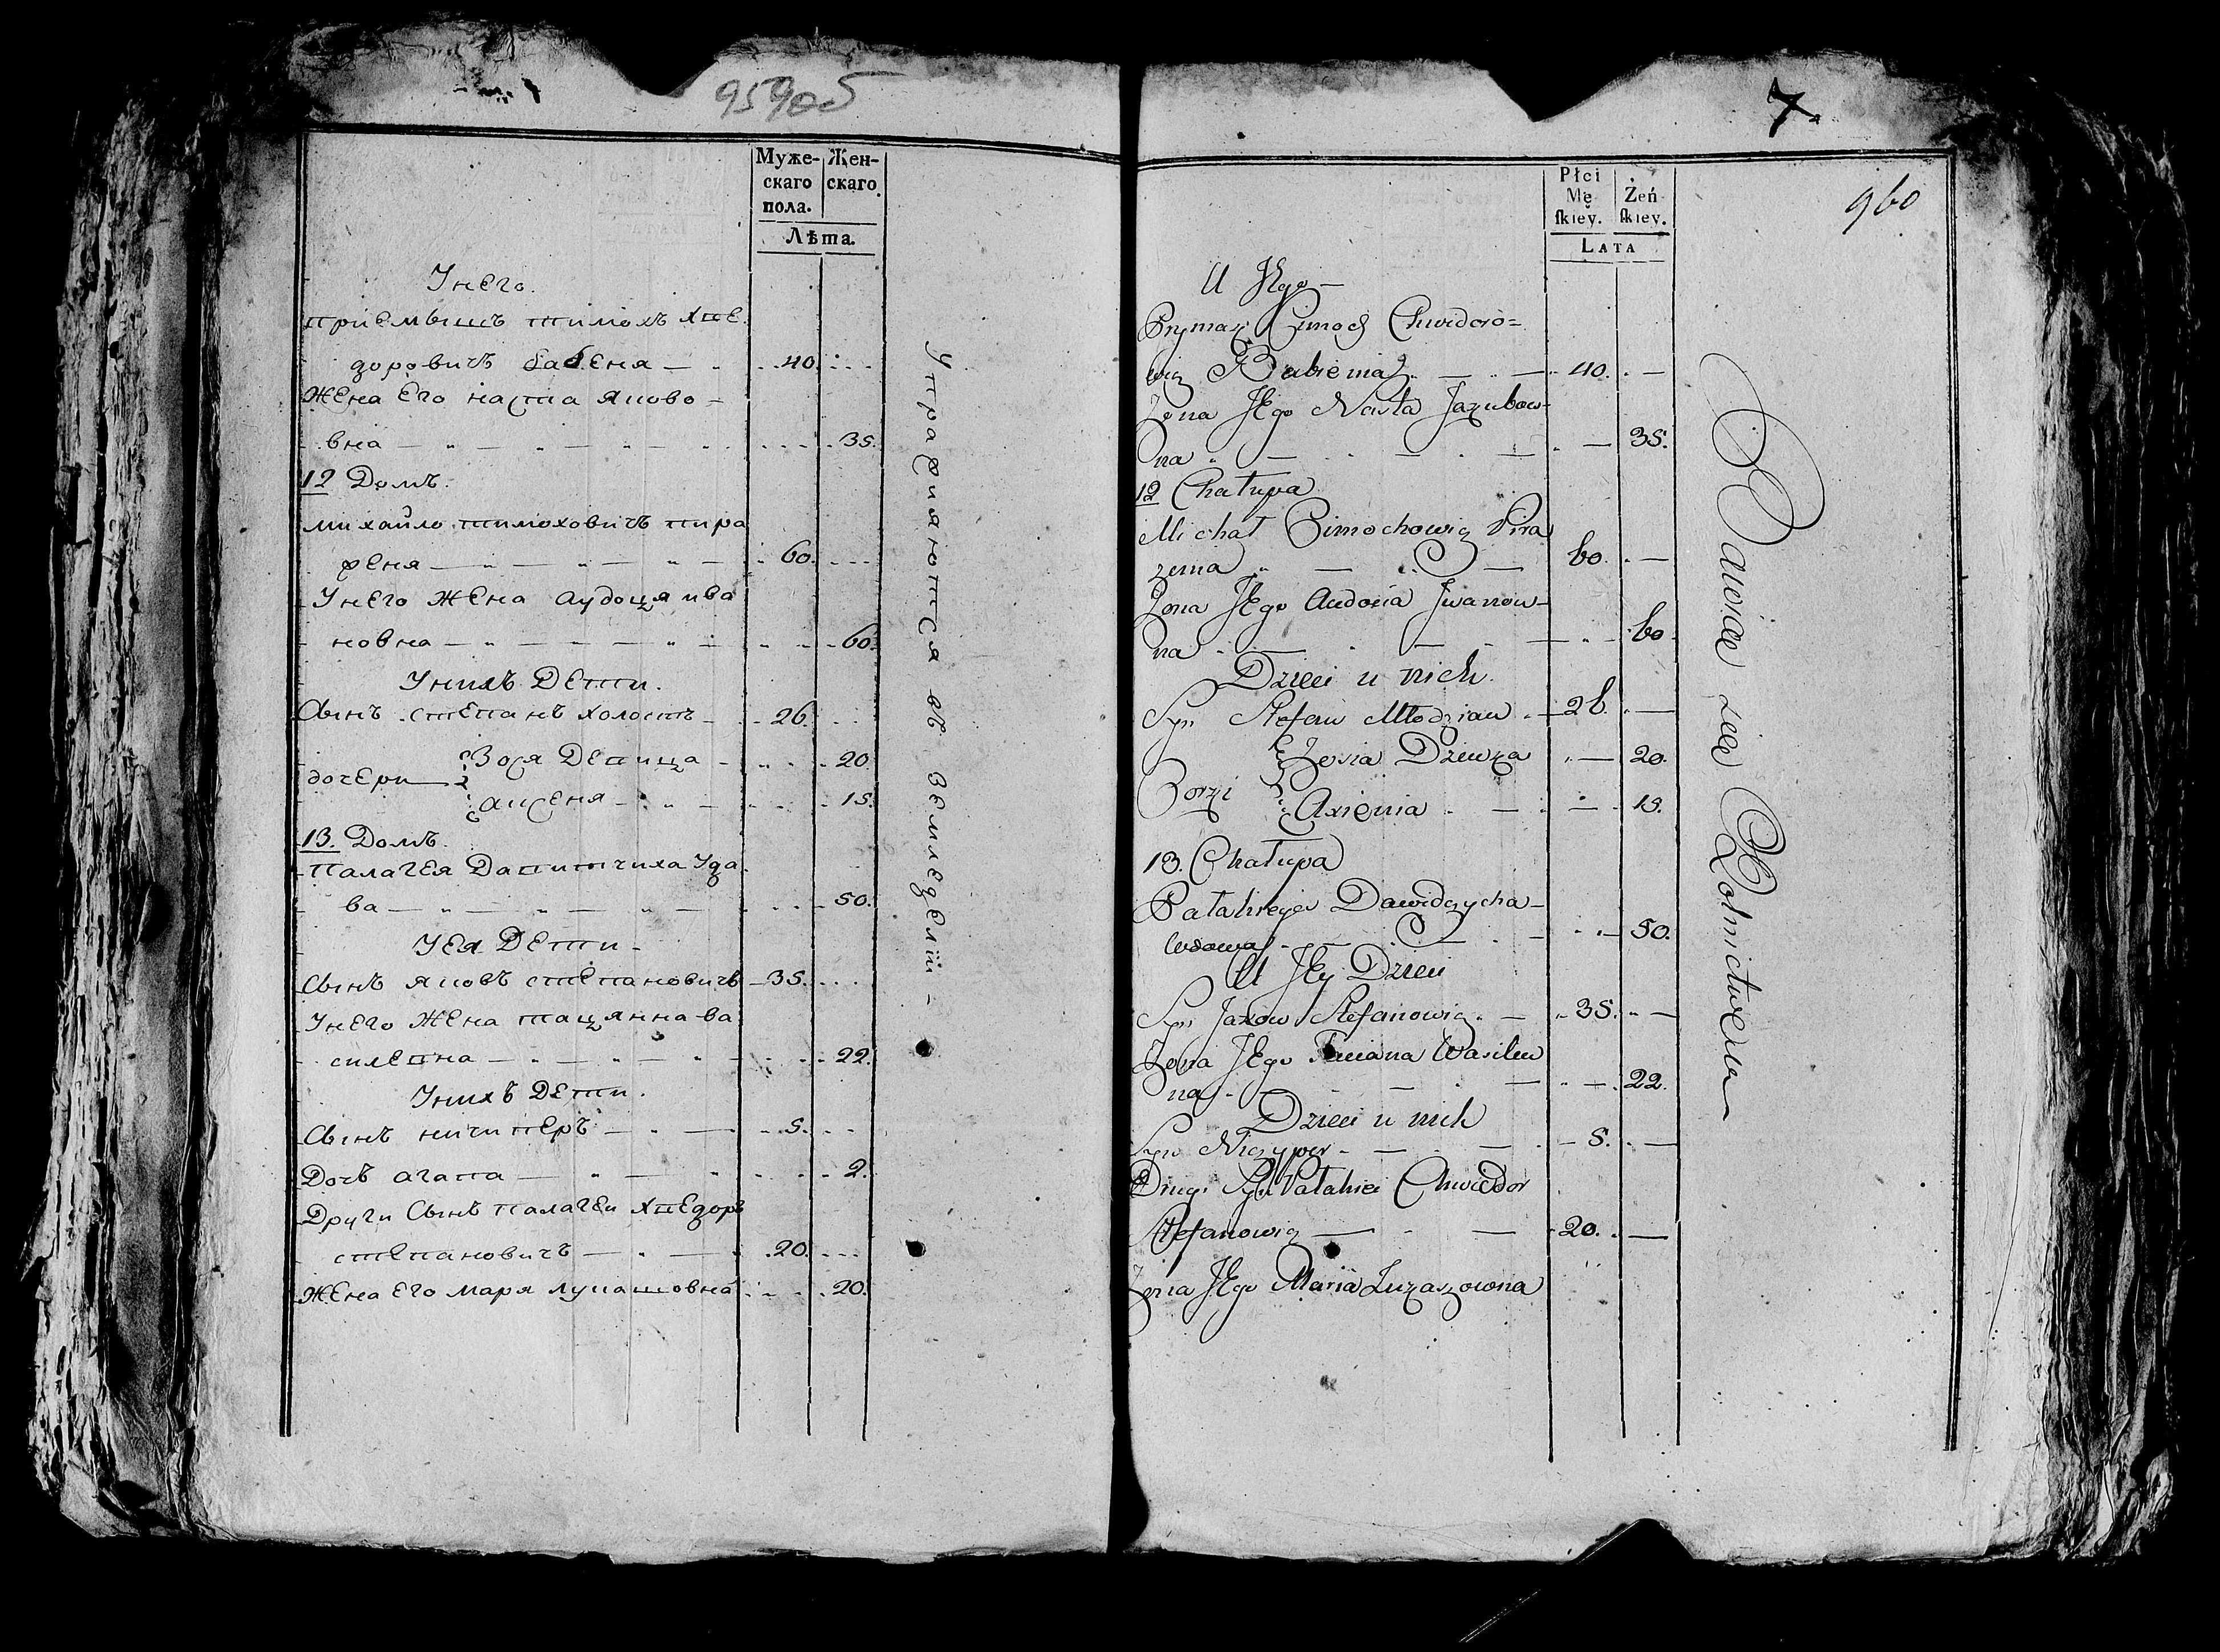 959об
Муже- Жен-
скаго скаго
пола.
Лѣта.
У него.
приемышъ тимохъ хве
доровичъ бабеня 40.
Жена Его наста яково-
вна 35.
12 Домъ.
михайло тимоховичъ пира
женя 60.
У него Жена аудоця ива
новна 60.
У нихъ Дети.
Сынъ степанъ холостъ 26.
дочери Зося Девица 20
аксеня 15.
13. Домъ.
Палагея Давитчиха Удо
ва 50.
У ея Дети
Сынъ яковъ степановичъ 35.
У него Жена тацянна ва
силевна 22.
У нихъ Дети.
Сынъ ничиперъ 5.
Дочъ агапа 2.
Други Сынъ палагеи хведоръ
степановичъ 20.
Жена Его маря лукашовна 20.
Упражняются въ земледелїи
7.
960
Płci
Mę Żeń
skiey. skiey.
LATA
U Jego
Prymak Cimoch Chwidoro=
wicz Babienia 40.
Zona Jego Nasta Jakubow-
na 35.
12 Chałupa
Michał Cimochowicz Pira
żenia 60.
Zona Jego Audocia Iwanow-
na 60.
Dzieci u nich.
Syn Stefan Młodzian 26.
Corki Zosia Dziewka 20.
Axienia 15.
13. Chałupa
Pałahieja Dawidczycha
wdowa 50.
U Jey Dzieci
Syn Jakow Stefanowicz 35.
Zona Jego Taciana Wasilew
na 22.
Dzieci u nich
Syn Niczyper 5.
Drugi Syn Pałahiei Chwiedor
Stefanowicz 20.
Zona Jego Maria Łukaszowna
Bawią się Rolnictwem